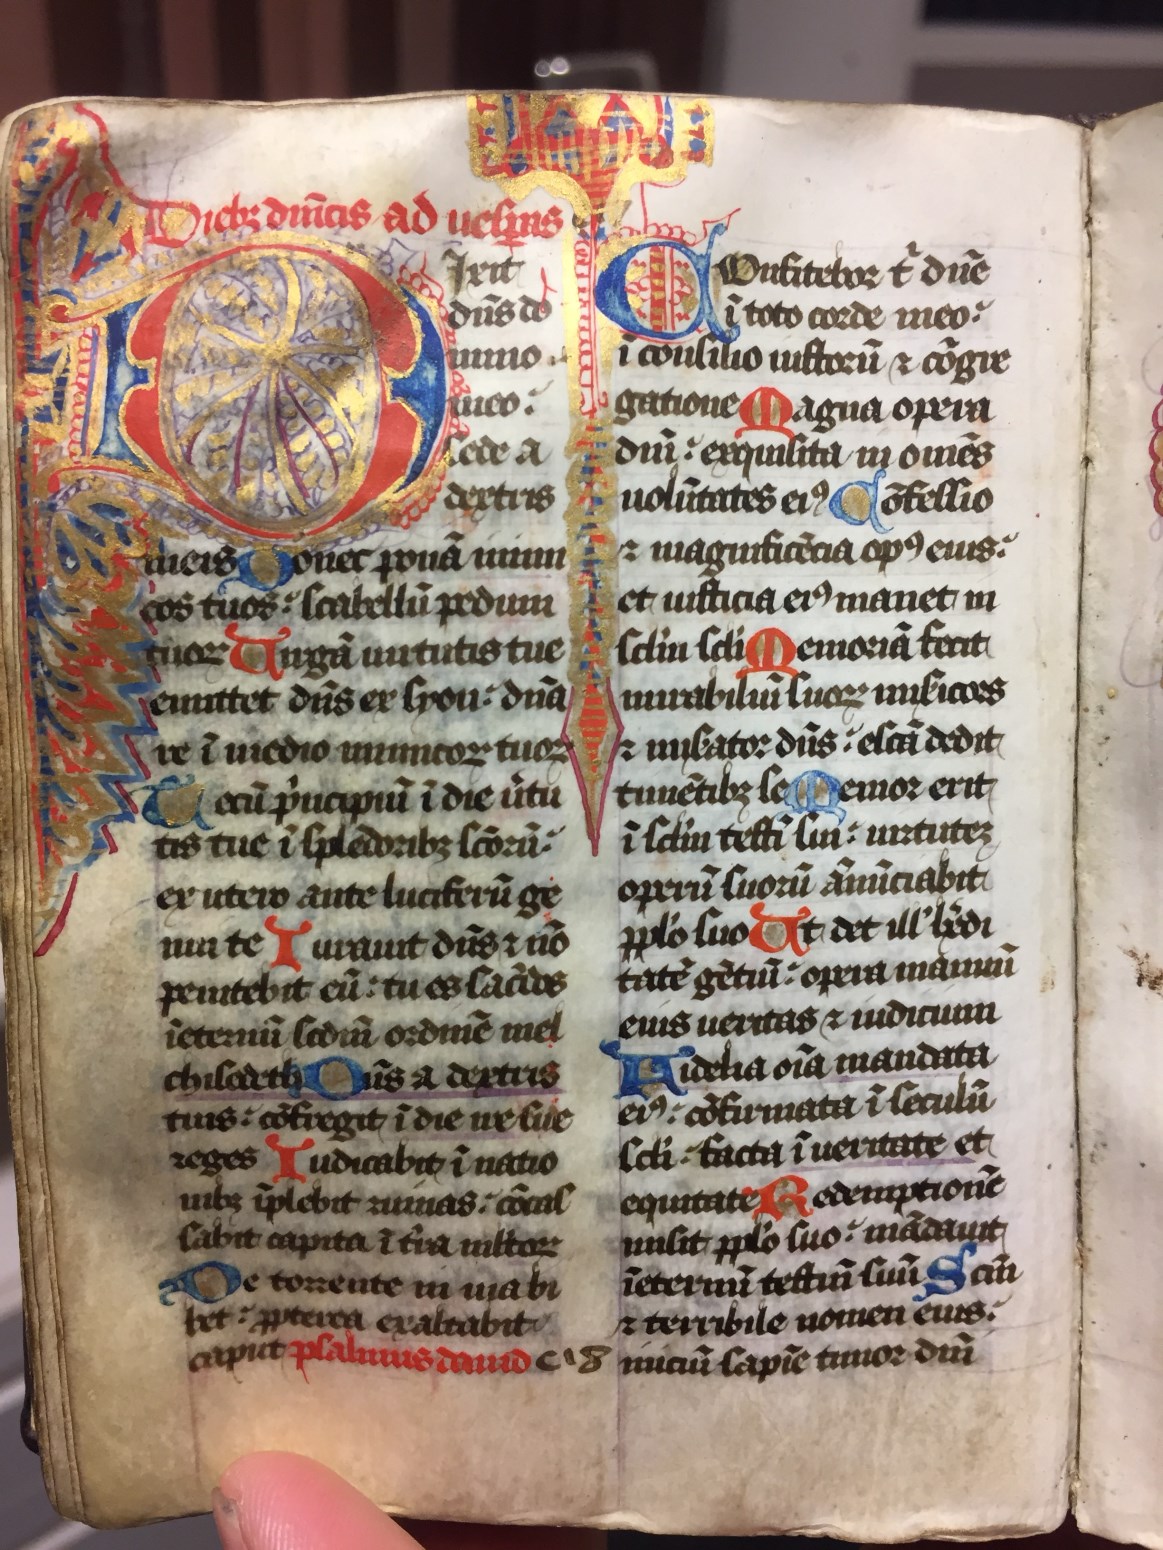 Dieb᷒ dn̄icis ad vesp̄as
Ixit
dn̄s do
mino
meo:
sede a
dextris
meis Donec ponā inimi
cos tuos: scabellū pedum
tuoꝝ Uirgā uirtutis tue
emittet dn̄s ex syon: dn̄a
re ī medio inimicoꝝ tuoꝝ
Tecū p̄ncipiū ī die ūtu
tis tue ī splēdoribꝫ scōrū:
ex utero ante luciferū ge
nui te Iurauit dn̄s ⁊ nō
penitebit eū: tu es sac̄dos
īeternū scd̄m ordinē mel
chisedech Dn̄s a dextris
tuis: cōfregit ī die ire sue
reges Iudicabit ī natio
nibꝫ īplebit ruinas: cōcas
sabit capita ī tr̄a multoꝝ
De torrente in uia bi
bet: ꝓpterea exaltabit
caput psalmus dauid
Onfitebor t̄ dn̄e
ī toto corde meo:
ī consilio iustorū ⁊ cōgre
gatione Magna opera
dn̄i: exquisita in om̄es
uolūtates eiꝰ Cōfessio
⁊ magnificēcia opꝰ eius:
et iusticia eiꝰ manet in
sclm̄ scli Memoriā fecit
mirabiliū suoꝝ misicors
⁊ misator dn̄s: escā dedit
timētibꝫ se Memor erit
ī sclm̄ testi sui: uirtutez
operū suorū ānūciabit
pplo suo Ut det ill' hr̄di
tatē gētiū: opera manuū
eius ueritas ⁊ iudicium
Fidelia oīa mandata
eiꝰ: cōfirmata ī seculū
scli: facta ī ueritate et
equitate Redemptionē
misit pplo suo: mādauit
īeternū testm̄ suū Scm̄
⁊ terribile nomen eius:
iniciū sapīe timor dn̄i